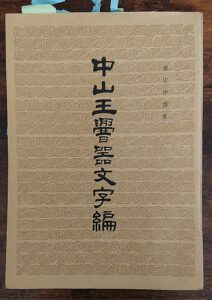 張守中撰集
中山王器文字編